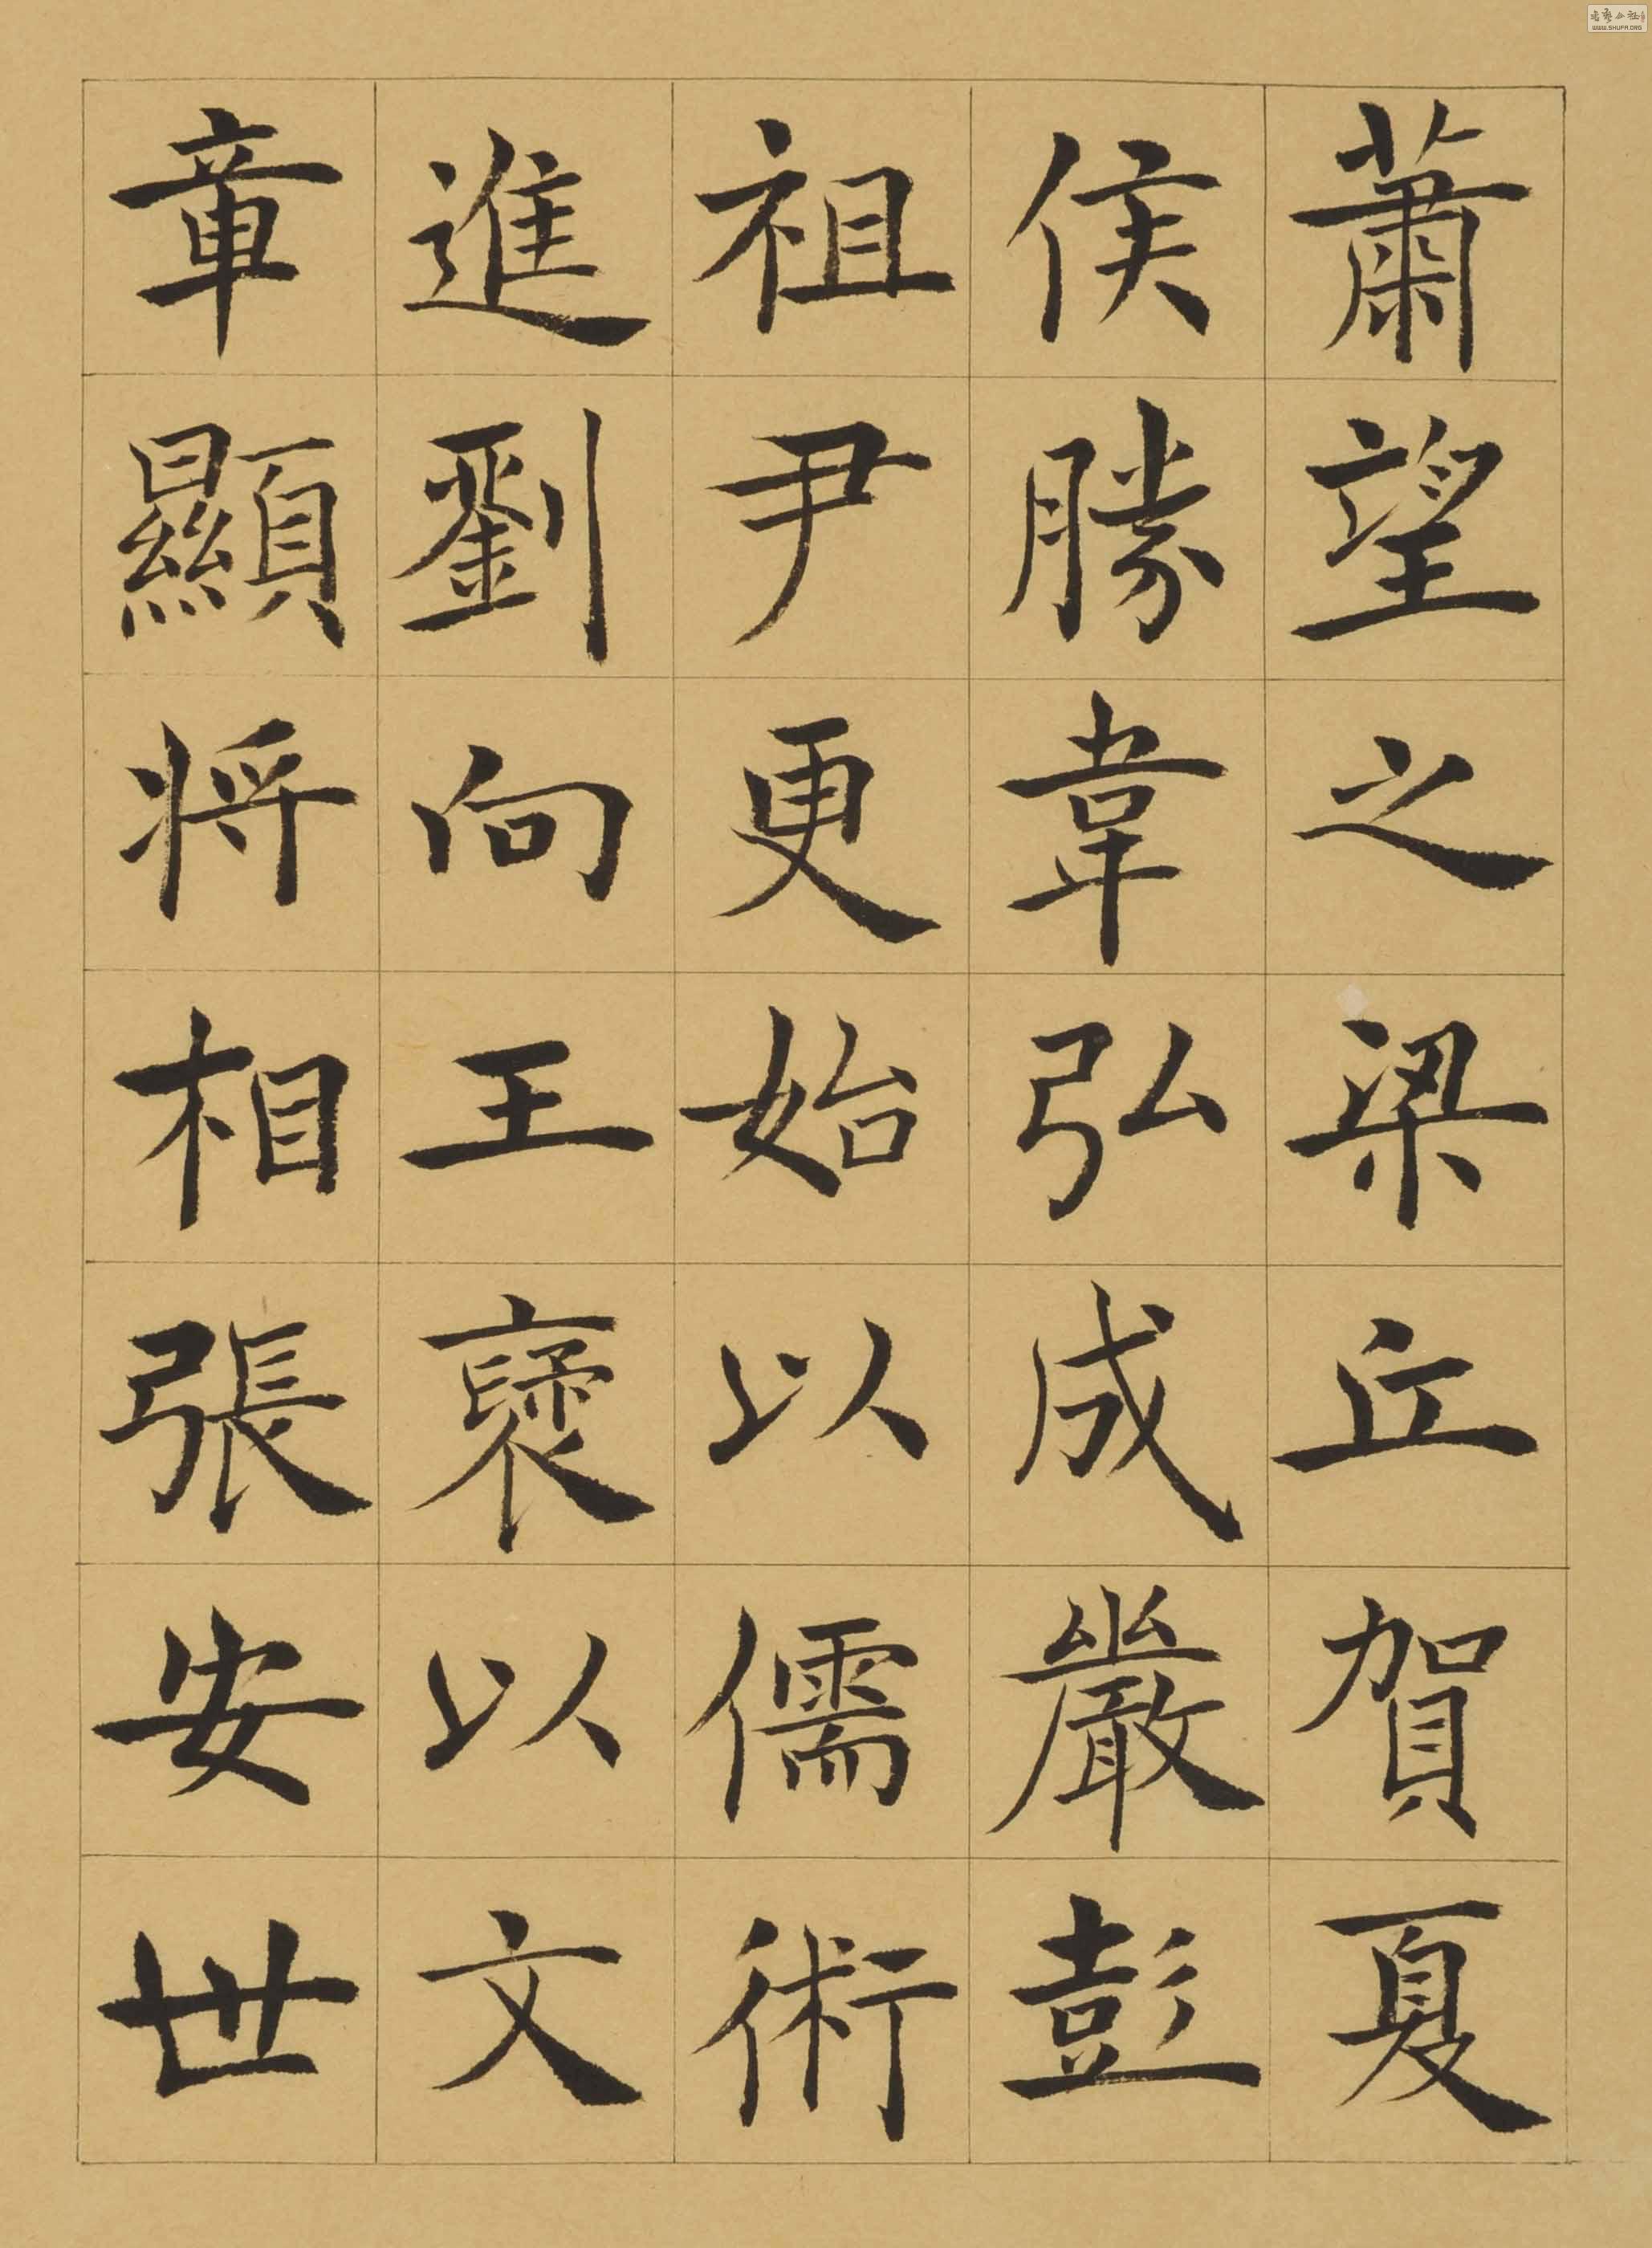 蕭望之梁丘賀夏
侯勝韋弘成嚴彭
祖尹更始以儒術
進劉向王襃以文
章顯將相張安世
WWW.SHUFA.ORG